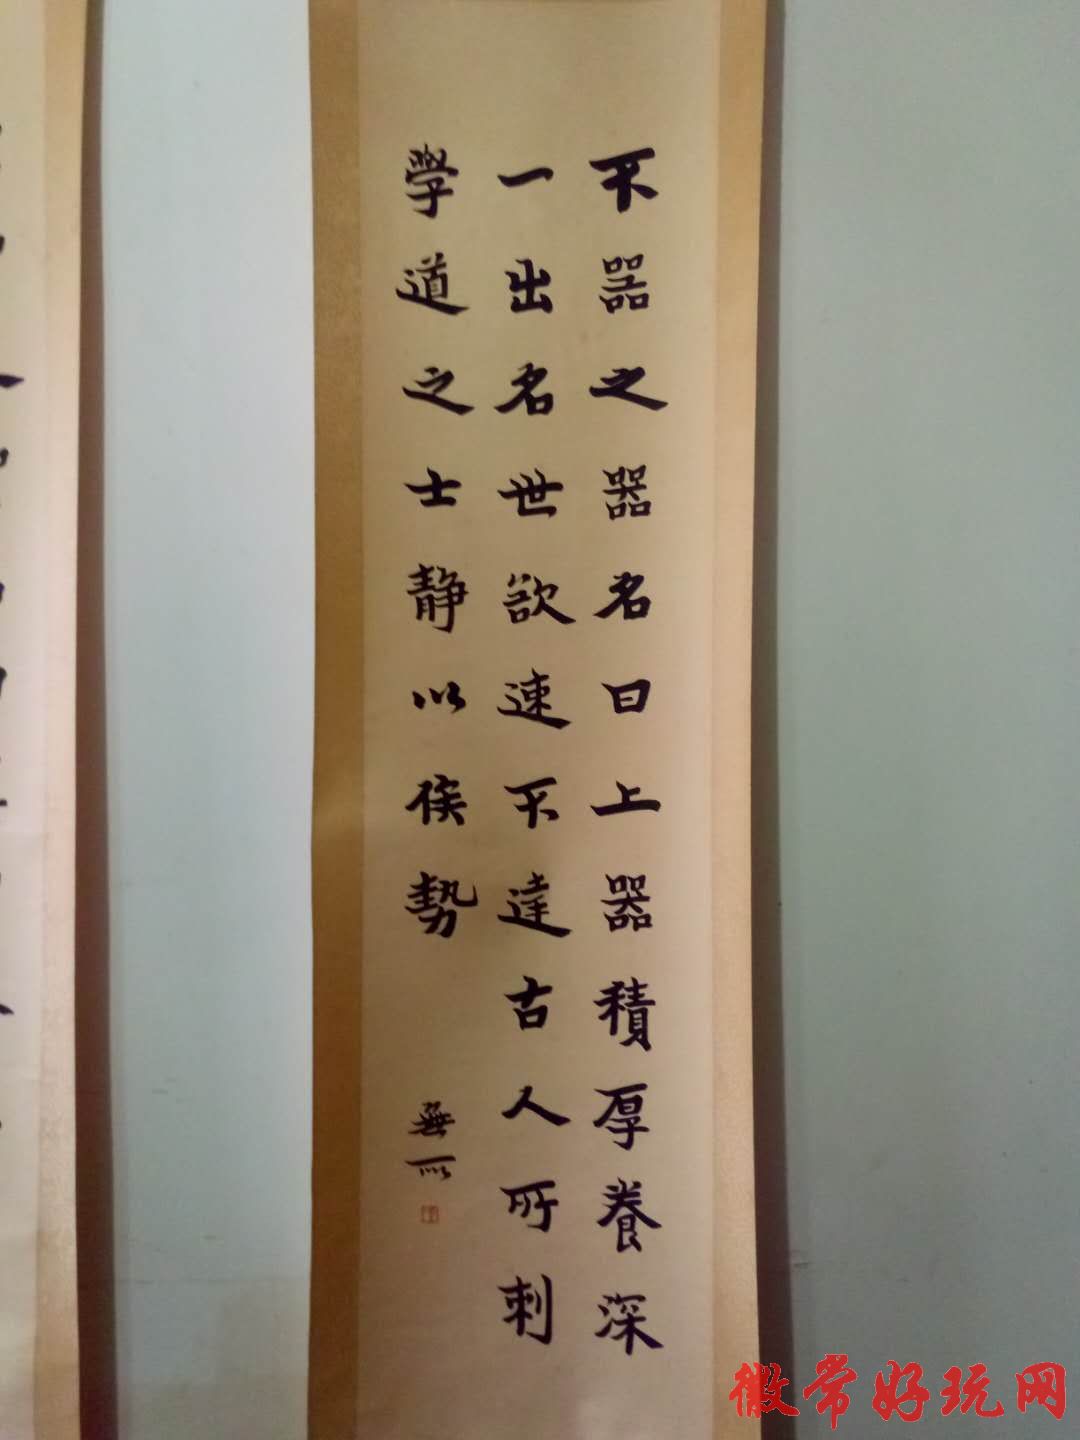 不器之器名曰上器積厚養深
一出名世欲速不達古人所刺
學道之士靜以俟勢
無
徽常好玩网